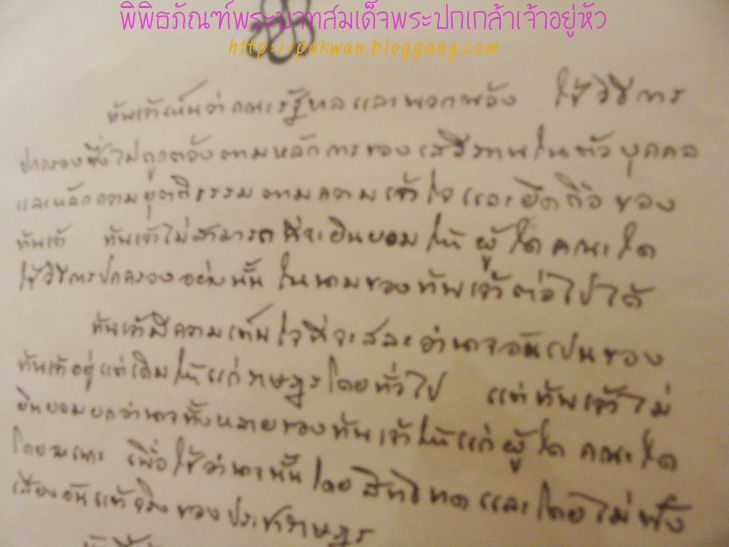 พิพิธภัณฑ์พระบาทสมเด็จพระปกเกล้าเจ้าอยู่หัว
http://pakwan.bloggang.com
ข้าพเจ้าเห็นว่าคณะรัฐบาลและพวกพ้อง ใช้วิธีการ
ปกครองซึ่งไม่ถูกต้องตามหลักการของเสรีภาพในตัวบุคคล
และหลักความยุตติธรรมตามความเข้าใจและยึดถือของ
ข้าพเจ้า ข้าพเจ้าไม่สามารถที่จะยินยอมให้ผู้ใดคณะใด
ใช้วิธีการปกครองอย่างนั้น ในนามของข้าพเจ้าต่อไปได้
ข้าพเจ้ามีความเต็มใจที่จะสละอำนาจอันเป็นของ
ข้าพเจ้าอยู่แต่เดิมให้แก่ราษฎรโดยทั่วไป แต่ข้าพเจ้าไม่
ยินยอมยกอำนาจทั้งหลายของข้าพเจ้าให้แก่ผู้ใด คณะใด
โดยฉะเพาะ เพื่อใช้อำนาจนั้นโดยสิทธิขาดและโดยไม่ฟัง
เสียงอันแท้จริงของประชาราษฎร